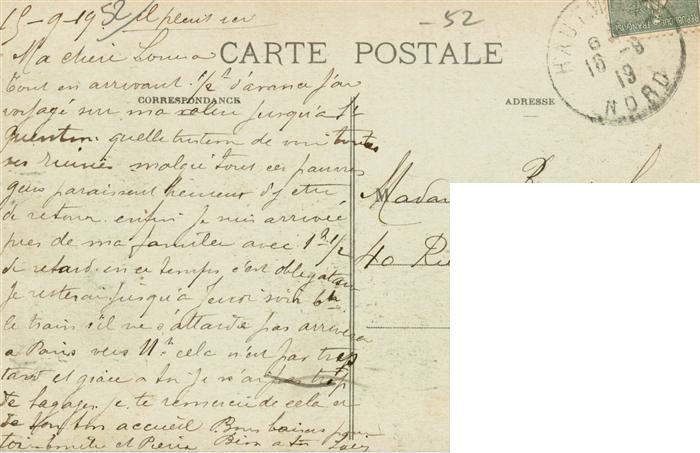 15-9-19 il pleut ici
-52
CARTE POSTALE
HAUTM NORD
16 -9
19
Ma chère Louisa
tout en arrivant. 1/2 h d'avance j'ai
CORRESPONDANCE
ADRESSE
voyagé sur ma jusqu'à St
Quentin. quelle tristesse de voir toutes
ses ruines malgré tout ces pauvres
gens paraissent heureux d'y être
de retour. enfin je suis arrivée
Madam
près de ma famille avec 1 h 1/2
40 Rue
de retard. en ce temps c'est obligatoire
je resterai jusqu'à jeudi soir 6h
le train s'il ne s'attarde pas arrivera
a Paris vers 11h cela n'est pas trop
tard et grâce a toi je n'ai pas trop
de bagages je te remercie de cela et
de ton bon accueil Bons baisers pour
toi et Pierre Bien a toi